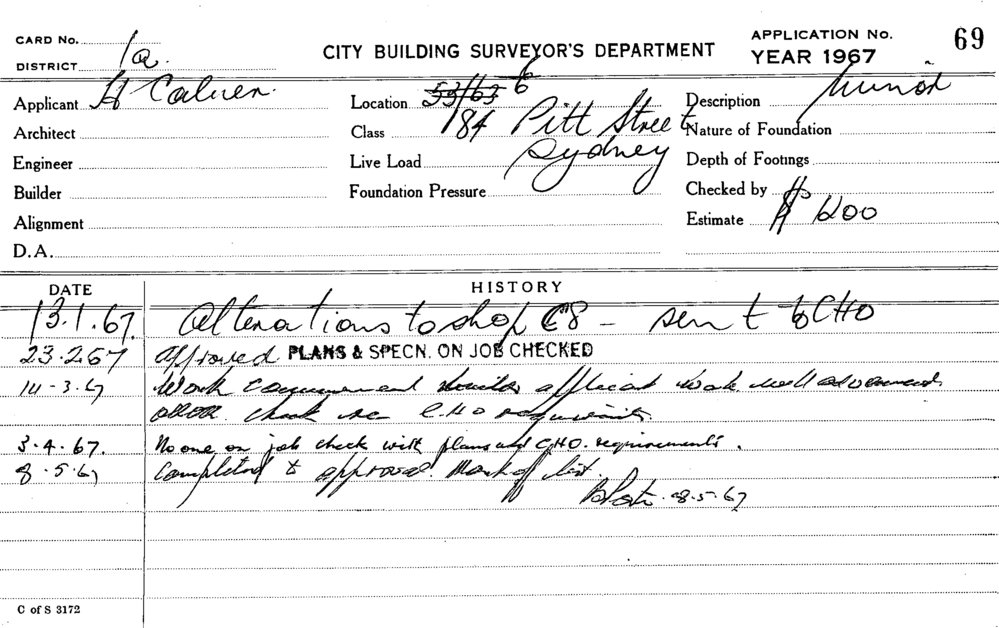 CARD No.
1a.
DISTRICT
CITY BUILDING SURVEYOR'S DEPARTMENT
APPLICATION No.
YEAR 1967
69
Applicant H
Location 53/63 6
Description Minor
Architect
Class 184 Pitt Street
Nature of Foundation
Engineer
Live Load Sydney
Depth of Footings
Builder
Foundation Pressure
Checked by
Alignment
Estimate 200
D.A.
DATE
HISTORY
13.1.67. Alterations to shop C8 - sent to CHO
23.2.67 approved PLANS & SPECN. ON JOB CHECKED
14-3.67 Work work well advanced
check C.HO requirements
3.4.67. No one on job check with plans and CHO. requirements.
8.5.67 Completed & approved. Mark off list.
8.5.67
C of S 3172